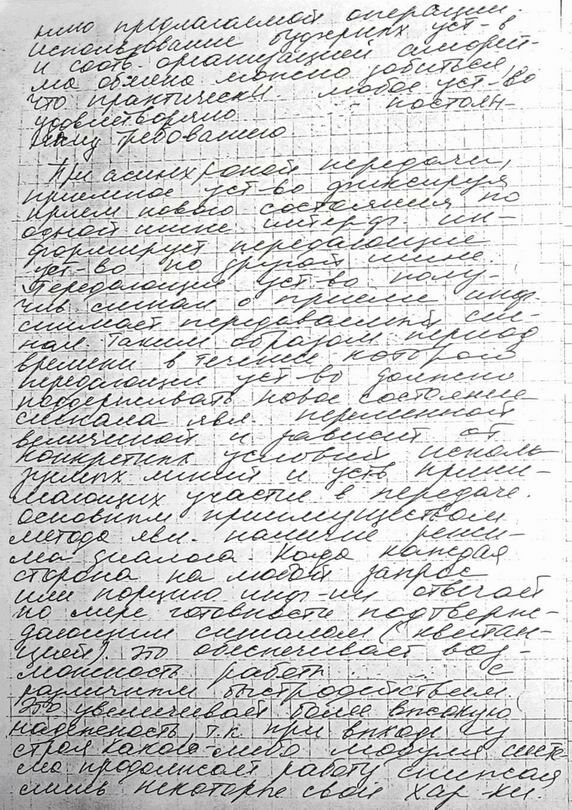 нию предлагаемой операции.
использование буферных уст-в
и соотв. организацией
ма обмена можно добиться,
что практически любое уст-во
удовлетворяло постоян-
ному требованию
При асинхронной передачи,
приемное уст-во фиксируя
прием нового состояния по
одной шине интерф. ин-
формирует передающие
уст-во по другой шине.
Передающие уст-во полу-
чив сигнал о приеме инф.
снимает передаваемый сиг-
нал. Таким образом период
времени в течение которого
передающие уст-во должно
поддерживать новое состояние
сигнала явл. переменной
величиной и зависит от
конкретных условий исполь
зуемых линий и уств прини-
мающих участие в передаче.
Основным преимуществом
метода явл. наличие режи-
ма диалога. Когда каждая
сторона на любой запрос
или порцию инф-ии отвечает
по мере готовности подтверж-
дающим сигналом (квитан-
цией). Это обеспечивает воз-
можность работы с
различным быстродействием.
Это увеличивает более высокую
надежность, т.к. при выходе из
строя какого-либо модуля систе-
ма продолжает работу снижая
лишь некоторые свои хар-ки.